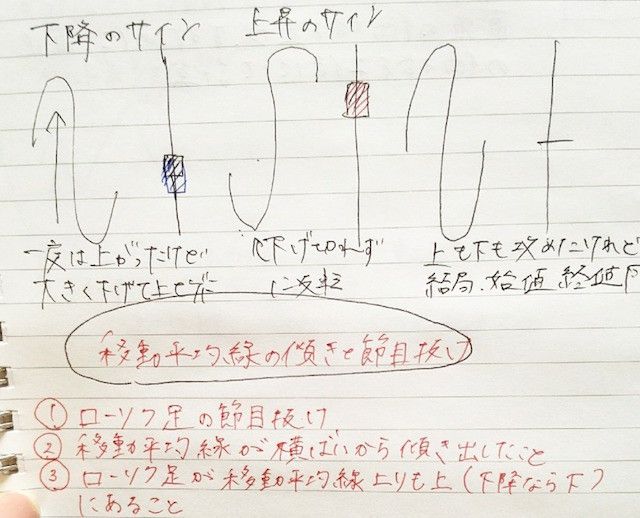 下降のサイン
上昇のサイン
一度は上がったけど
大きく下げて上
下げ切れず
に反転
上も下も攻めたけれど
結局、始値 終値
移動平均線の傾きと節目抜け
① ローソク足の節目抜け
② 移動平均線が横ばいから傾き出したこと
③ ローソク足が移動平均線上りも上(下降なら下)
にあること